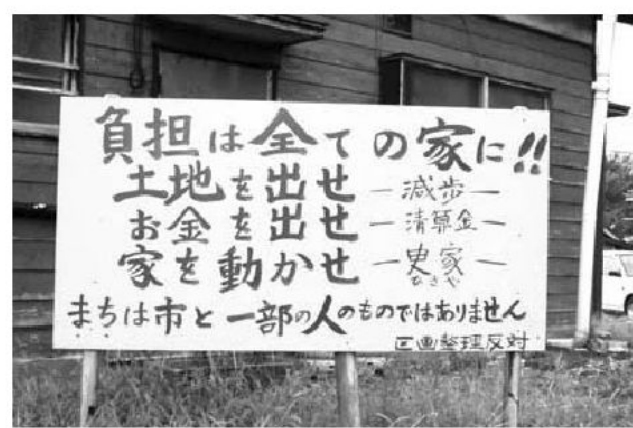 負担は全ての家に!!
土地を出せ —減歩—
お金を出せ —清算金—
家を動かせ —曳家—
ひきや
まちは市と一部の人のものではありません
区画整理反対